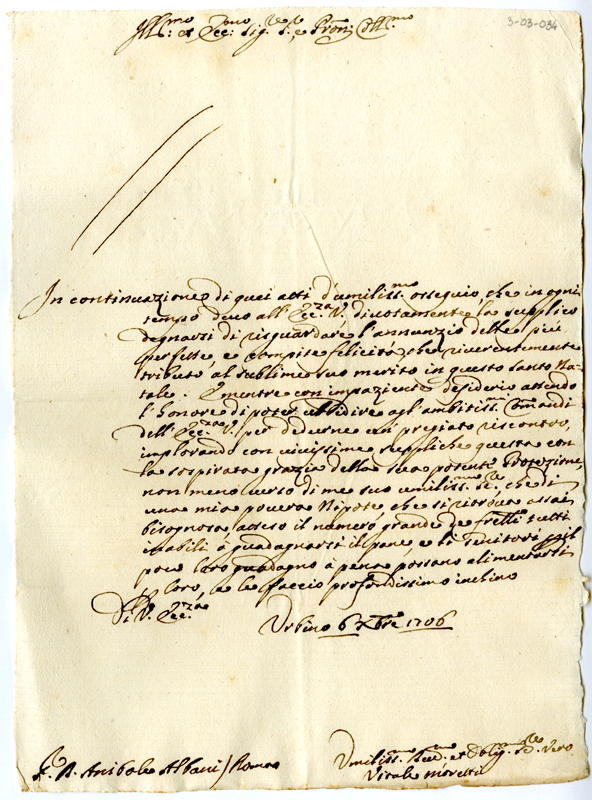 Ill:mo et Ecc:mo Sig.r S.e, e Pron: Coll:mo
3-03-034
In continuazione di quei atti d'umiliss:mo ossequio, che in ogni
tempo devo all'Ecc:za V. divotamente la supplico
degnarsi di risguardare l'annunzio delle più
perfette, e compite felicità, che riverentemente
tributo al sublime suo merito in questo Santo Na-
tale. E mentre con impaziente desiderio attendo
l'honore di poter ubbidire agl'ambitiss:mi Comandi
dell'Ecc:za V. per dedurne un pregiato riscontro,
implorando con vivissime suppliche questa con
la sospirata grazia della sua potente Protezione,
non meno verso di me suo umiliss:mo Se:re, che di
una mia povera Nipote che si ritrova assai
bisognosa, atteso il numero grande de frelli tutti
inabili à guadagnarsi il pane e li Genitori p il
poco loro guadagno à pena possono alimentarsi
loro, e le faccio profondissimo inchino
Di V. Ecc:za
Urbino 6 Xbre 1706
D. Anibale Albani / Roma
Umiliss:mo Dev:mo et Oblig:mo Se:re Vero
Vitale Moretti